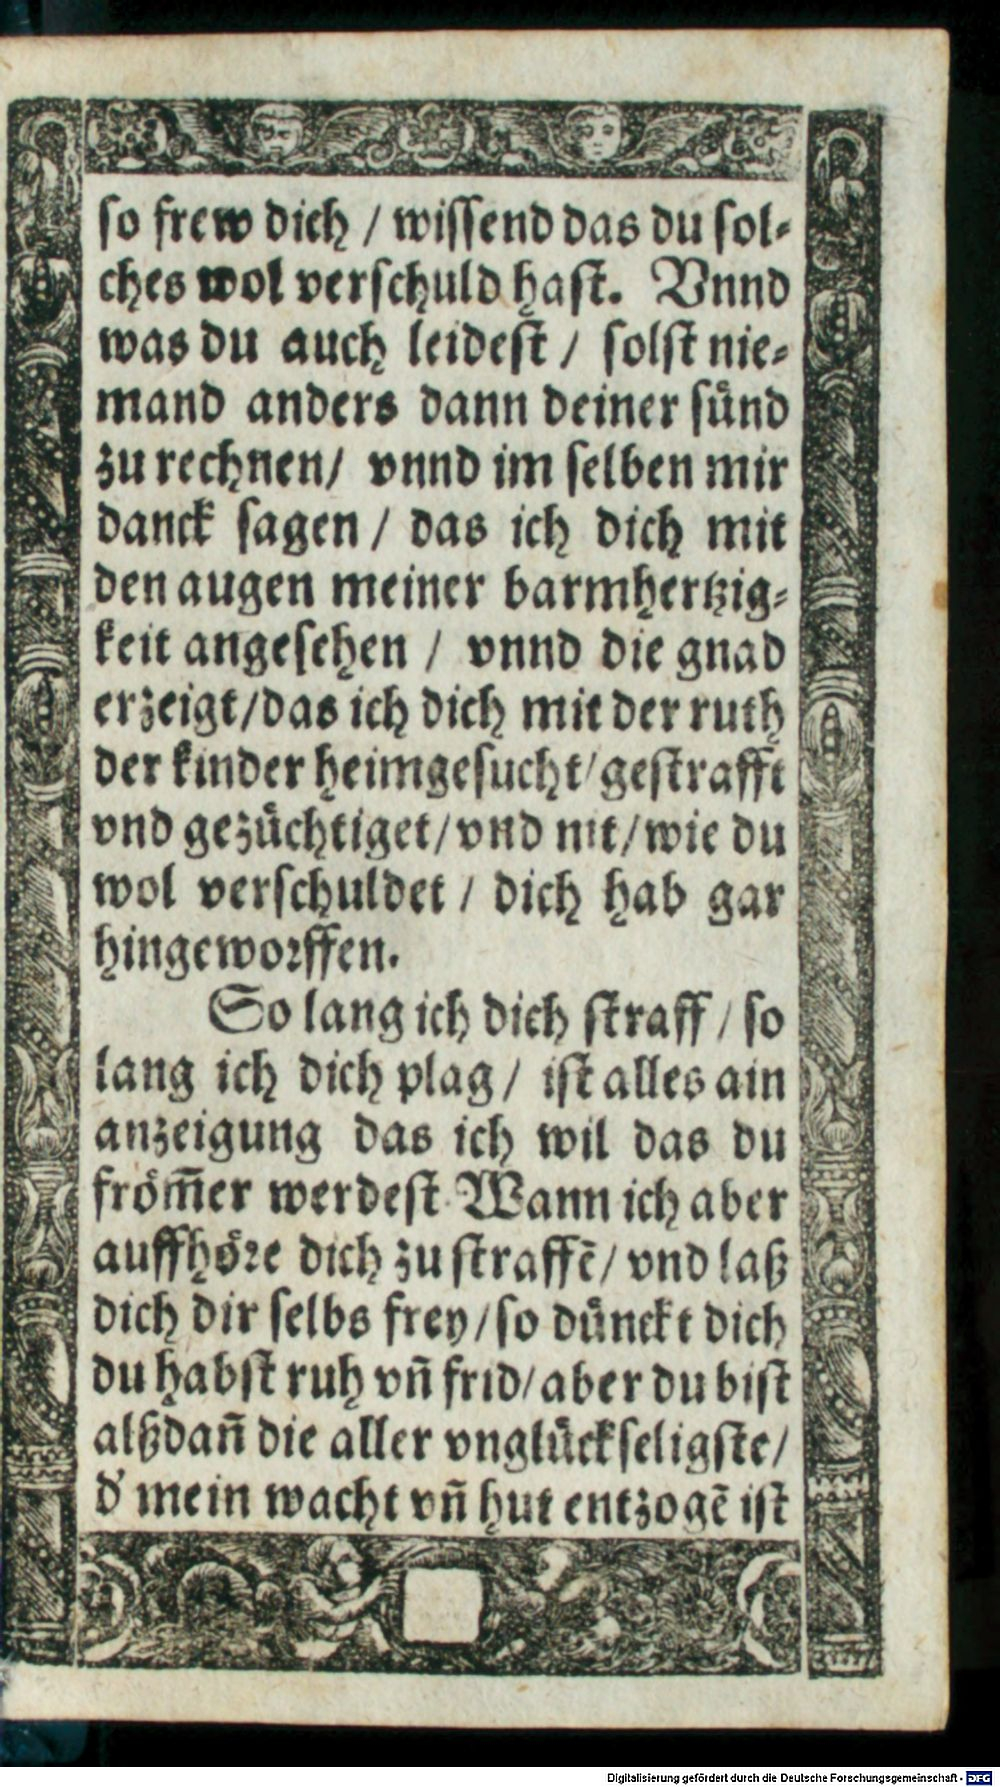 so frew dich / wissend das du sol⸗
ches wol verschuld hast. Vnnd
was du auch leidest / solst nie⸗
mand anders dann deiner sünd
zu rechnen / vnnd im selben mir
danck sagen / das ich dich mit
den augen meiner barmhertzig⸗
keit angesehen / vnnd die gnad
erzeigt / das ich dich mit der ruth
der kinder heimgesucht / gestrafft
vnd gezüchtiget / vnd nit / wie du
wol verschuldet / dich hab gar
hingeworffen.
So lang ich dich straff / so
lang ich dich plag / ist alles ain
anzeigung das ich wil das du
fröm̄er werdest. Wann ich aber
auffhöre dich zu straffē / vnd laß
dich dir selbs frey / so dünckt dich
du habst ruh vñ frid / aber du bist
alßdañ die aller vnglückseligste /
d' mein wacht vñ hut entzogē ist
Digitalisierung gefördert durch die Deutsche Forschungsgemeinschaft - DFG